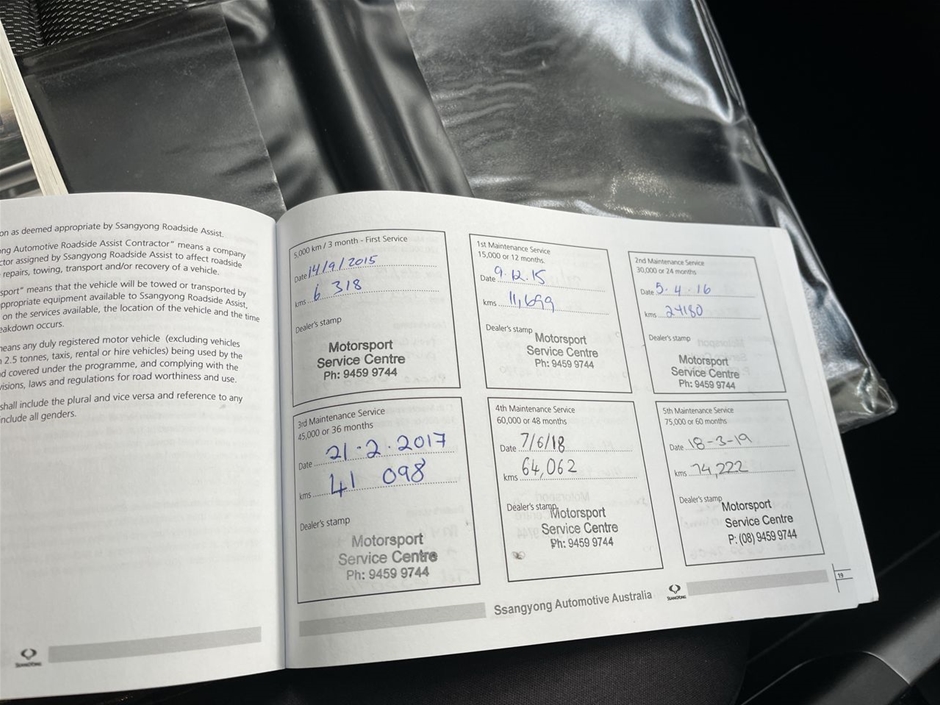 on as deemed appropriate by Ssangyong Roadside Assist.
ng Automotive Roadside Assist Contractor" means a company
ctor assigned by Ssangyong Roadside Assist to affect roadside
repairs, towing, transport and/or recovery of a vehicle.
sport" means that the vehicle will be towed or transported by
ppropriate equipment available to Ssangyong Roadside Assist,
on the services available, the location of the vehicle and the time
eakdown occurs.
neans any duly registered motor vehicle (excluding vehicles
2.5 tonnes, taxis, rental or hire vehicles) being used by the
d covered under the programme, and complying with the
visions, laws and regulations for road worthiness and use.
shall include the plural and vice versa and reference to any
include all genders.
SSANGYONG
5,000 km / 3 month - First Service
Date 14/9/2015
kms 6 318
Dealer's stamp
Motorsport
Service Centre
Ph: 9459 9744
1st Maintenance Service
15,000 or 12 months
Date 9.12.15
kms 11,699
Dealer's stamp
Motorsport
Service Centre
Ph: 9459 9744
2nd Maintenance Service
30,000 or 24 months
Date 5.4.16
kms 24180
Dealer's stamp
Motorsport
Service Centre
Ph: 9459 9744
3rd Maintenance Service
45,000 or 36 months
Date 21-2.2017
kms 41 098
Dealer's stamp
Motorsport
Service Centre
Ph: 9459 9744
4th Maintenance Service
60,000 or 48 months
Date 7/6/18
kms 64,062
Dealer's stamp
Motorsport
Service Centre
Ph: 9459 9744
5th Maintenance Service
75,000 or 60 months
Date 18-3-19
kms 74,222
Dealer's stamp
Motorsport
Service Centre
P: (08) 9459 9744
Ssangyong Automotive Australia
SSANGYONG
19